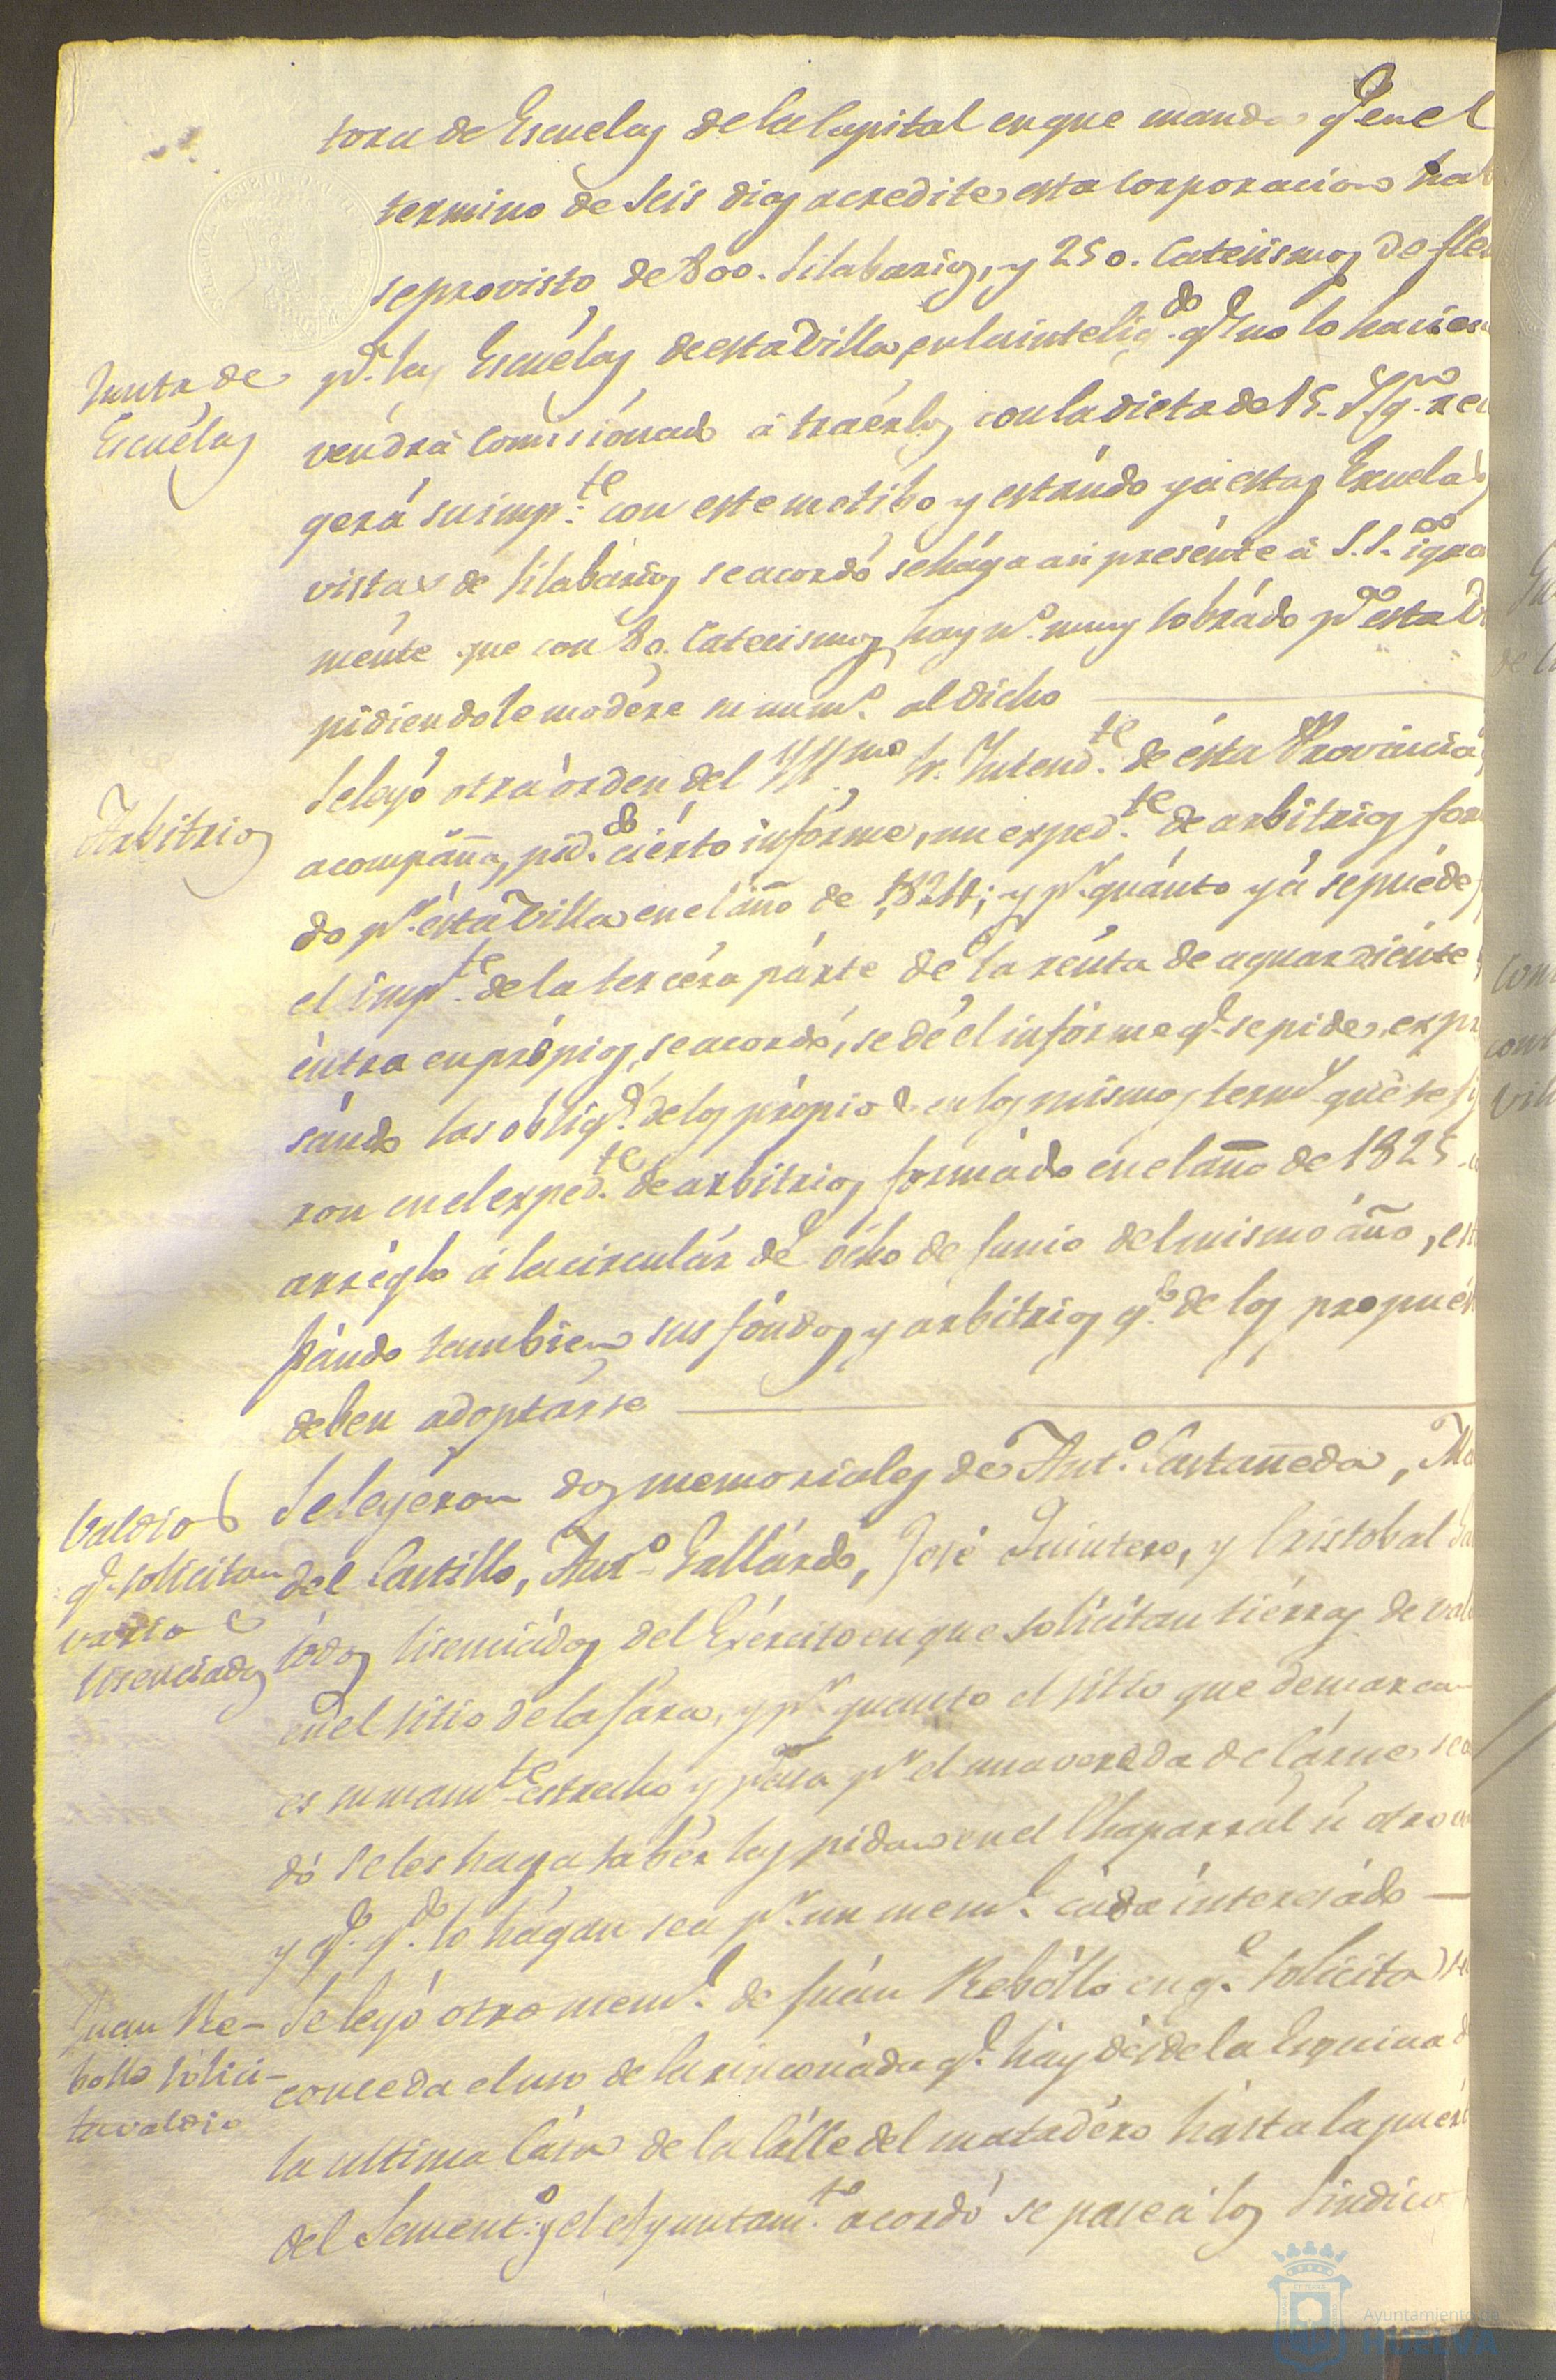 tora de Escuelas de la Capital en que manda qe. en el
termino de seis dias acredite esta corporacion hab
se provisto de 800. Silabarios, y 250. Catecismos de
Junta de
Escuélas
pa. las Escuélas de esta Villa, en la inteligdo. qe. no lo hacien
vendrá Comisionado á traérlos con la dieta de 15.
gerá su impte. con este motibo y estándo yá estas Escuelas
vistas de Silabários se acordó se hága asi presénte á S.S. igual
ménte que con 80. Catecismos hay no. muy sobrádo pa. esta
pidiendole modére su numo. al dicho
Arbitrios
Se leyó otra órden del Yllmo. Sr. Intendte. de ésta Provincia
acompáñna, pido. ciérto informe, un expedte. de arbitrios for
do pr. ésta Villa en el áño de 1824; y pr. quánto yá se puéde
el impte. de la tercéra párte de la rénta de aguardiénte
éntra en própios, se acordó, se dé el infórme qe. se pide, expre
sándo las óbligs. de los própios en los mismos termos. que se
ron en el expedte. de arbitrios formádo en el áño de 1825
arréglo á la circulár de ócho de Junio del mismo áño,
sándo tambien sus fóndos y arbitrios qe. de los propués
deben adoptárse
Valdios
qe. solicitan
varios
lisenciados
Se leyéron dos memoriales de Anto. Castañeda, Ma
del Castillo, Anto. Gallárdo, José Quintero, y Cristobal
tódos lisenciádos del Exército en que solicitan tiérras de vald
en el sitio de la Jara, y pr. quanto el sitio que demarcan
es sumamte. estrecho y pasa pr. el una vereda de Cárne se
dó se les haga sabér las pidan en el Chaparrál ú otro
y qe. qdo. lo hágan sea pr. un meml. cáda interesádo
Juan Re-
bollo solici-
ta valdio
Se leyó otro meml. de Juan Rebóllo en qe. solicita se
conceda el uso de la rinconáda qe. háy désde la Esquina d
la ultima Cása de la Cálle del matadéro hásta la puért
del Sement.o y el Ayuntamto. acordó se pase á los Sindicos
Ayuntamiento de
HUELVA